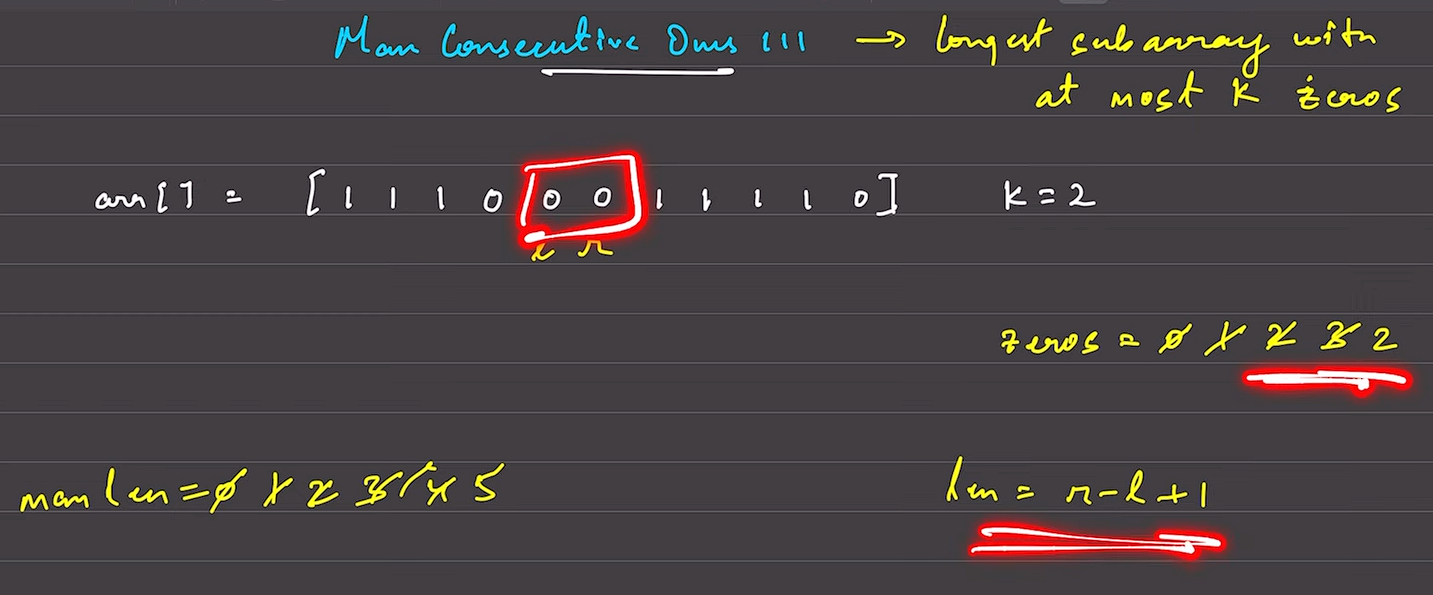 Max Consecutive Ones III → longest subarray with
at most K zeros
arr[] = [1 1 1 0 0 0 1 1 1 1 0] K=2
l r
zeros = 0 1 2 3 2
maxlen = 0 1 2 3 4 5
len = r-l+1